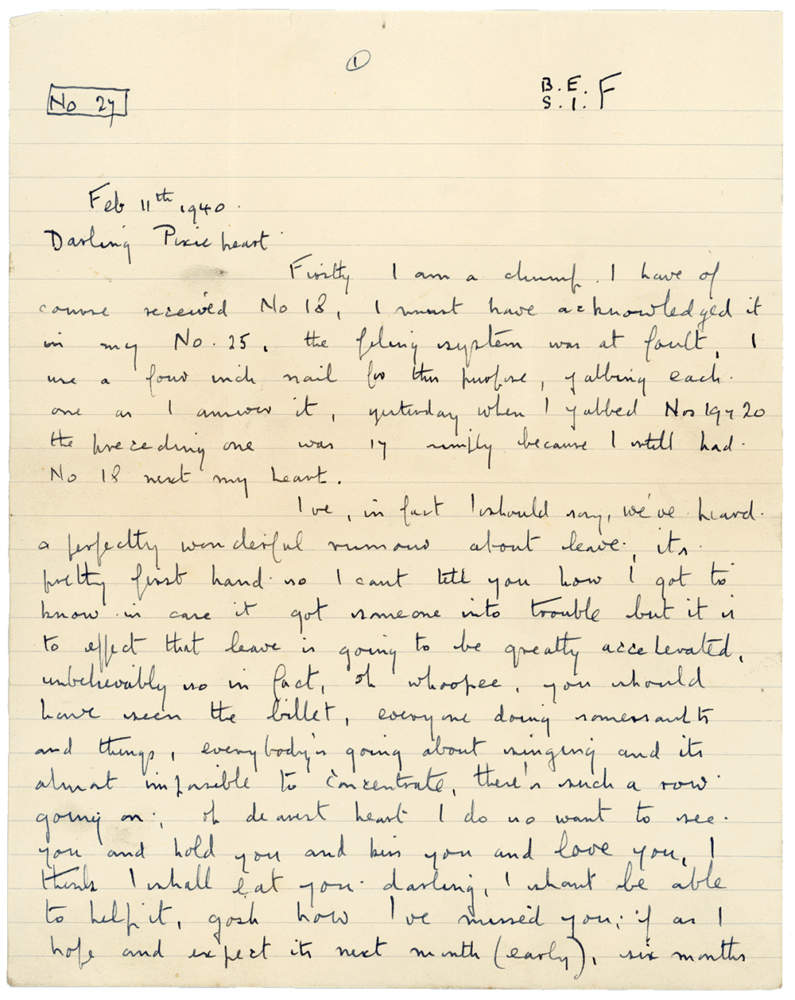 ①
No 27
B. E.
S. I. F
Feb 11th 1940.
Darling Pixie heart.
Firstly I am a chump. I have of
course received No 18, I must have acknowledged it
in my No. 25, the filing system was at fault, I
use a four inch nail for this purpose, jabbing each.
one as I answer it, yesterday when I jabbed Nos 19 & 20
the preceeding one was 17 simply because I still had.
No 18 next my heart.
I've, in fact I should say, we've heard.
a perfectly wonderful rumour about leave, its.
pretty first hand so I cant tell you how I got to
know in case it got someone into trouble but it is
to effect that leave is going to be greatly accelerated,
unbelievably so in fact, oh whoopee, you should
have seen the billet, everyone doing somersaults
and things, everybody's going about singing and its
almost impossible to concentrate, there's such a row.
going on; oh dearest heart I do so want to see.
you and hold you and kiss you and love you, I
think I shall eat you darling, I shant be able
to help it, gosh how I've missed you; if as I
hope and expect its next month (early), six months